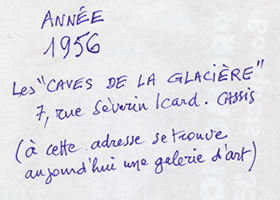 ANNÉE
1956
Les "CAVES DE LA GLACIÈRE"
7, rue Séverin Icard. CASSIS
(à cette adresse se trouve
aujourd'hui une galerie d'art)